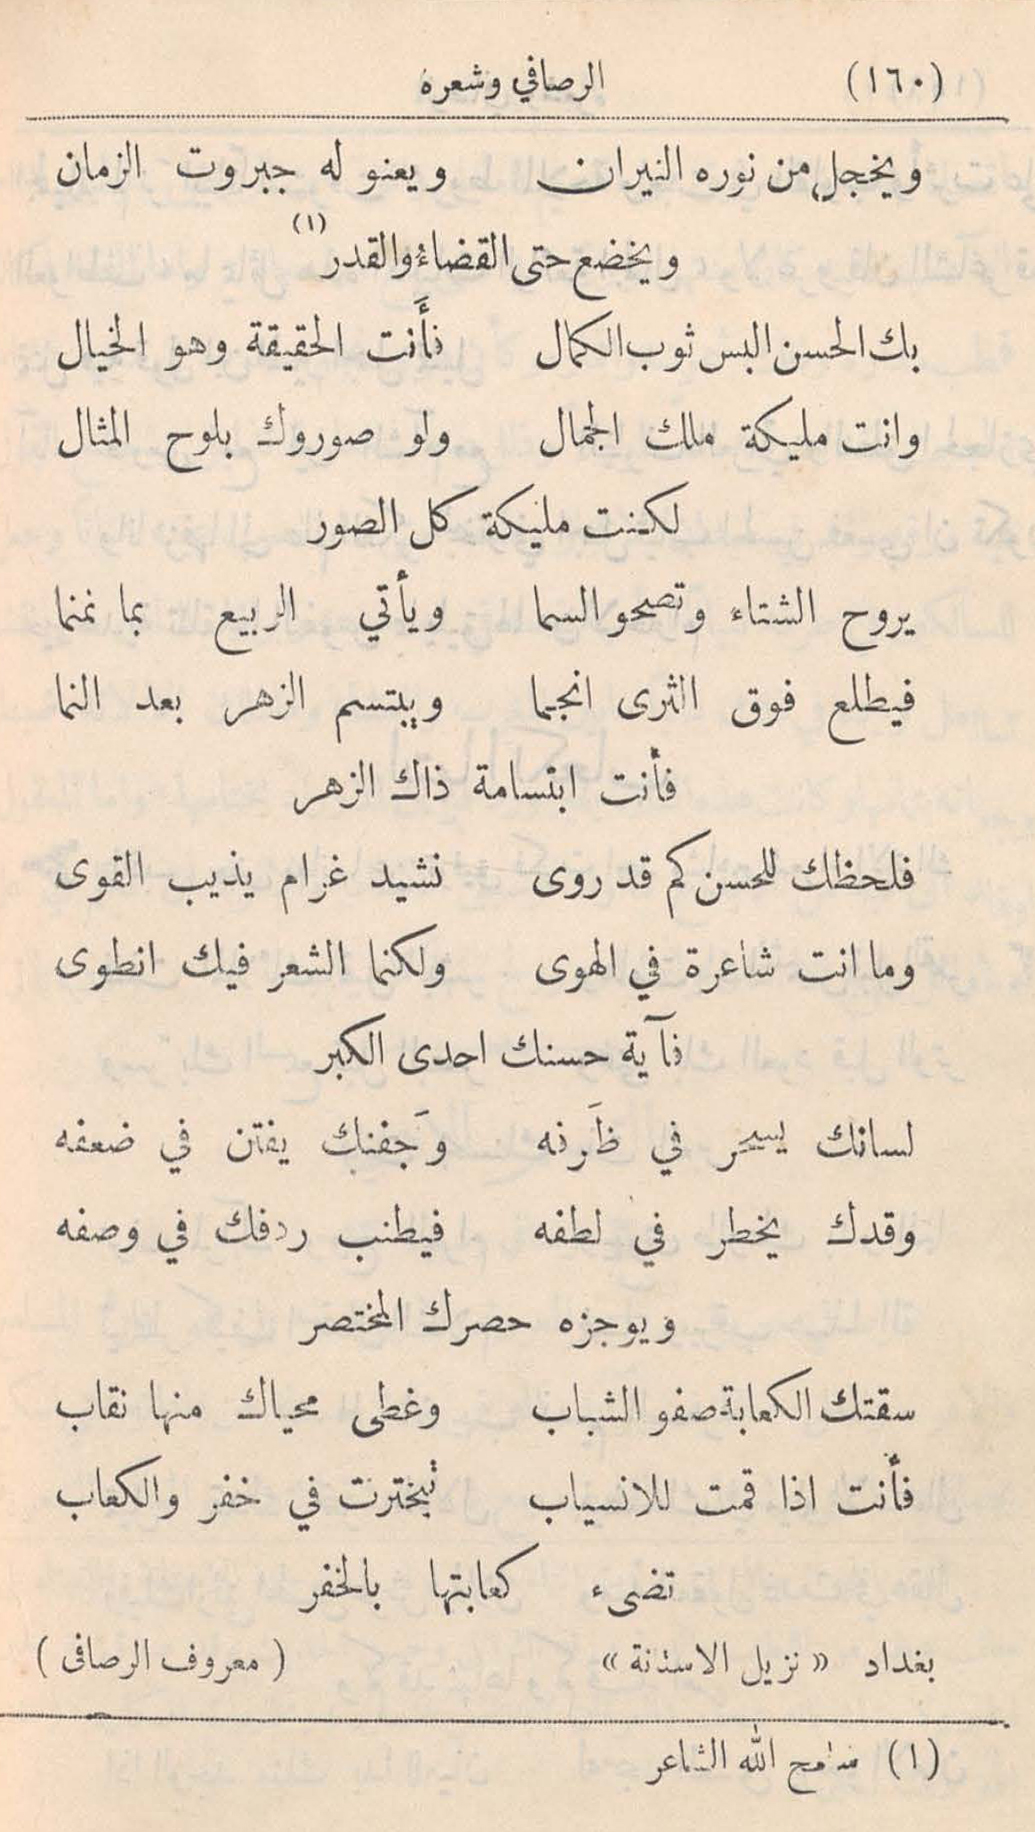 (١٦٠) الرصافي وشعره
ويخجل من نوره النيران ويعنو له جبروت الزمان
ويخضع حتى القضاء والقدر (١)
بك الحسن البس ثوب الكمال فأنت الحقيقة وهو الخيال
وانت مليكة ملك الجمال ولو صوروك بلوح المثال
لكنت مليكة كل الصور
يروح الشتاء وتصحو السما ويأتي الربيع بما نمنما
فيطلع فوق الثرى انجما ويبتسم الزهر بعد النما
فأنت ابتسامة ذاك الزهر
فلحظك للحسن كم قد روى نشيد غرام يذيب القوى
وما انت شاعرة في الهوى ولكنما الشعر فيك انطوى
فآية حسنك احدى الكبر
لسانك يسحر في ظَرفه وَجفنك يفتن في ضعفه
وقدك يخطر في لطفه فيطنب ردفك في وصفه
ويوجزه حصرك المختصر
سقتك الكعابة صفو الشباب وغطى محياك منها نقاب
فأنت اذا قمت للانسياب تبخترت في خفر والكعاب
تضيء كعابتها بالخفر
بغداد « نزيل الاستانة » ( معروف الرصافى )
(١) سامح الله الشاعر